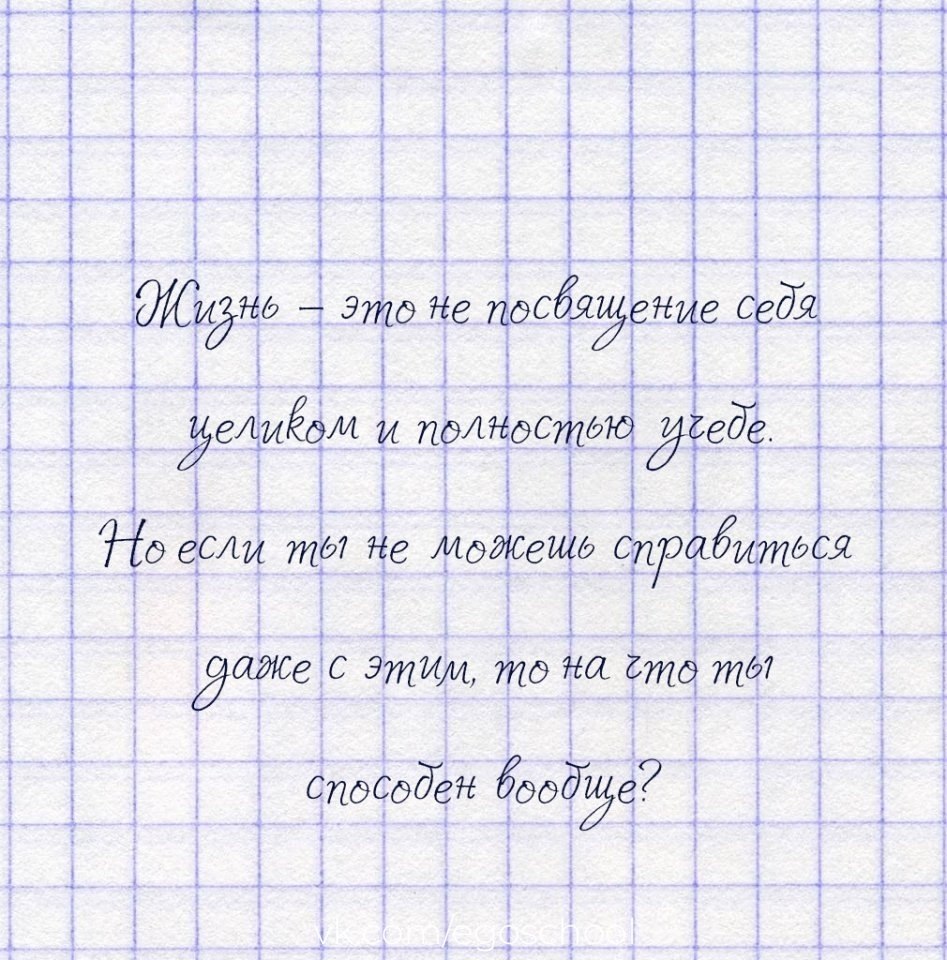 Жизнь – это не посвящение себя
целиком и полностью учебе.
Но если ты не можешь справиться
даже с этим, то на что ты
способен вообще?
vk.com/egoschool